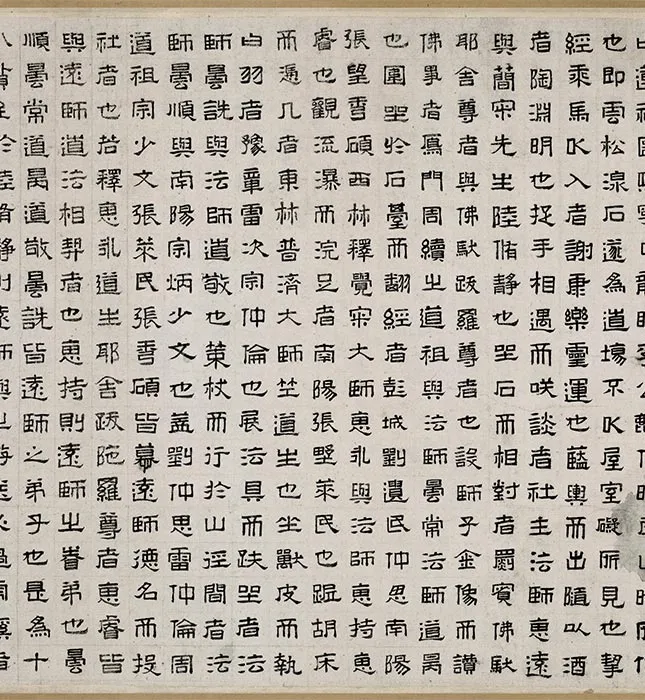 也即雲松湶石遂為道場不以屋室礙所見也挈
經乘馬以入者謝康樂靈運也藍輿而出隨以酒
者陶淵明也捉手相遇而咲談者社主法師惠遠
與簡寂先生陸脩靜也坐石而相對者罽賓佛馱
耶舍尊者與佛馱跋羅尊者也設師子金像而讚
佛事者鴈門周續之道祖與法師曇常法師道昺
也圍坐於石臺而翻經者彭城劉遺民仲思南陽
張望秀碩西林釋覺寂大師惠永與法師惠持惠
睿也觀流瀑而浣足者南陽張野萊民也踞胡床
而憑几者東林普濟大師竺道生也坐獸皮而執
白羽者豫章雷次宗仲倫也展法具而趺坐者法
師曇詵與法師道敬也策杖而行於山徑間者法
師曇順與南陽宗炳少文也蓋劉仲思雷仲倫周
道祖宗少文張萊民張秀碩皆慕遠師德名而投
社者也若釋惠永道生耶舍跋陀羅尊者惠睿皆
與遠師道法相契者也惠持則遠師之眷弟也曇
順曇常道昺道敬曇詵皆遠師之弟子也是為十
八賢至於陸脩靜則遠師與之